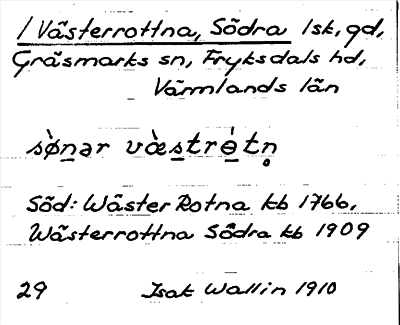 / Västerrottna, Södra 1sk, gd,
Gräsmarks sn, Fryksdals hd,
Värmlands län
sø̀nər væ̀strɵ̀tn̥
Söd: Wäster Rotna kb 1766,
Wästerrottna Södra kb 1909
29 Isak Wallin 1910